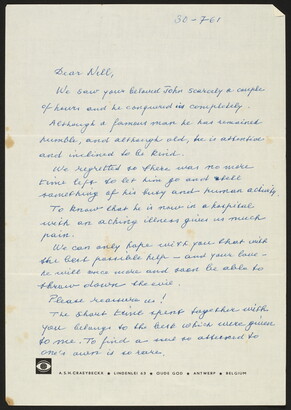 30-7-61
Dear Nell,
We saw your beloved John scarcely a couple
of hours and he conquered us completely.
Although a famous man he has remained
humble, and although old, he is attentive
and inclined to be kind.
We regretted so there was no more
time left to let him go and tell
something of his busy and human activity
To know that he is now in a hospital
with an aching illness gives us much
pain.
We can only hope with you that with
the best possible help - and your love -
he will once more and soon be able to
throw down the evil.
Please reassure us!
The short time spent together with
you belongs to the best which were given
to me. To find a soul so attuned to
one's own is so rare.
A.E.H. CRAEYBECKX • LINDENLEI 63 • OUDE GOD • ANTWERP • BELGIUM